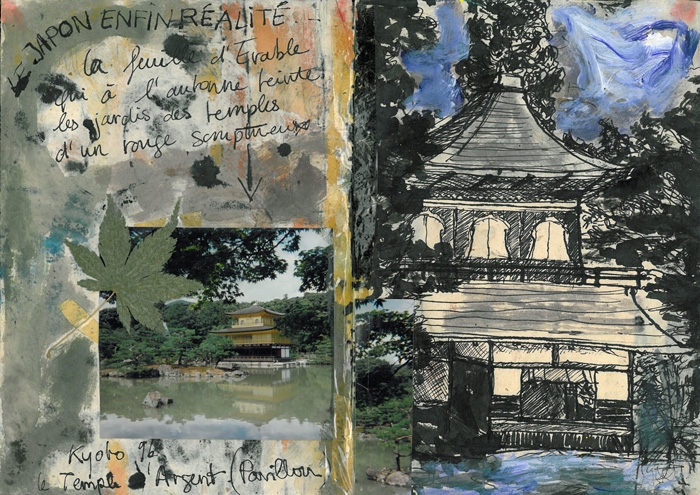 LE JAPON ENFIN RÉALITÉ
la feuille d'Erable
qui à l'automne teinte
les jardis des temples
d'un rouge somptueux
Kyoto 96
le Temple d'Argent (Pavillon)